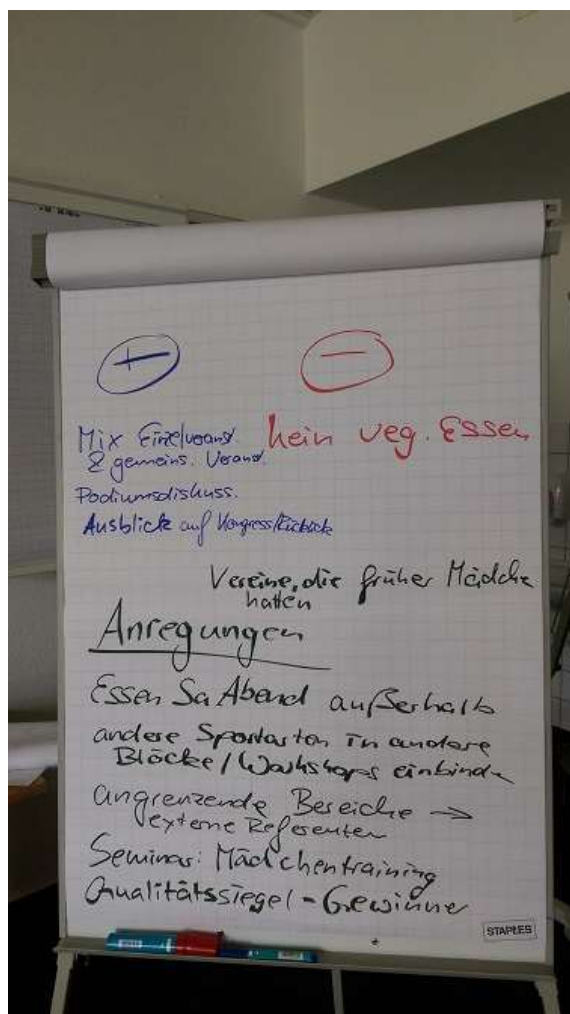 +
−
Mix Einzelveranst.
& gemeins. Veranst.
kein veg. Essen
Podiumsdiskuss.
Ausblick auf Kongress/Rückblick
Vereine, die früher Mädche
hatten
Anregungen
Essen Sa Abend außerhalb
andere Sportarten in andere
Blöcke/Workshops einbinde
angrenzende Bereiche →
externe Referenten
Seminar: Mädchentraining
Qualitätssiegel - Gewinner
STAPLES